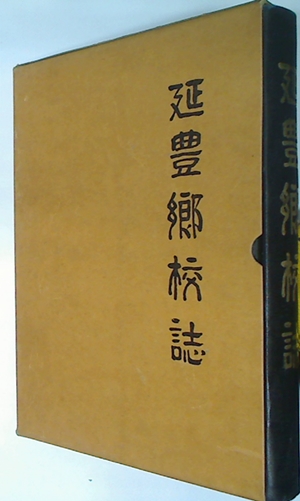 延豊鄉校誌
延豊鄉校誌